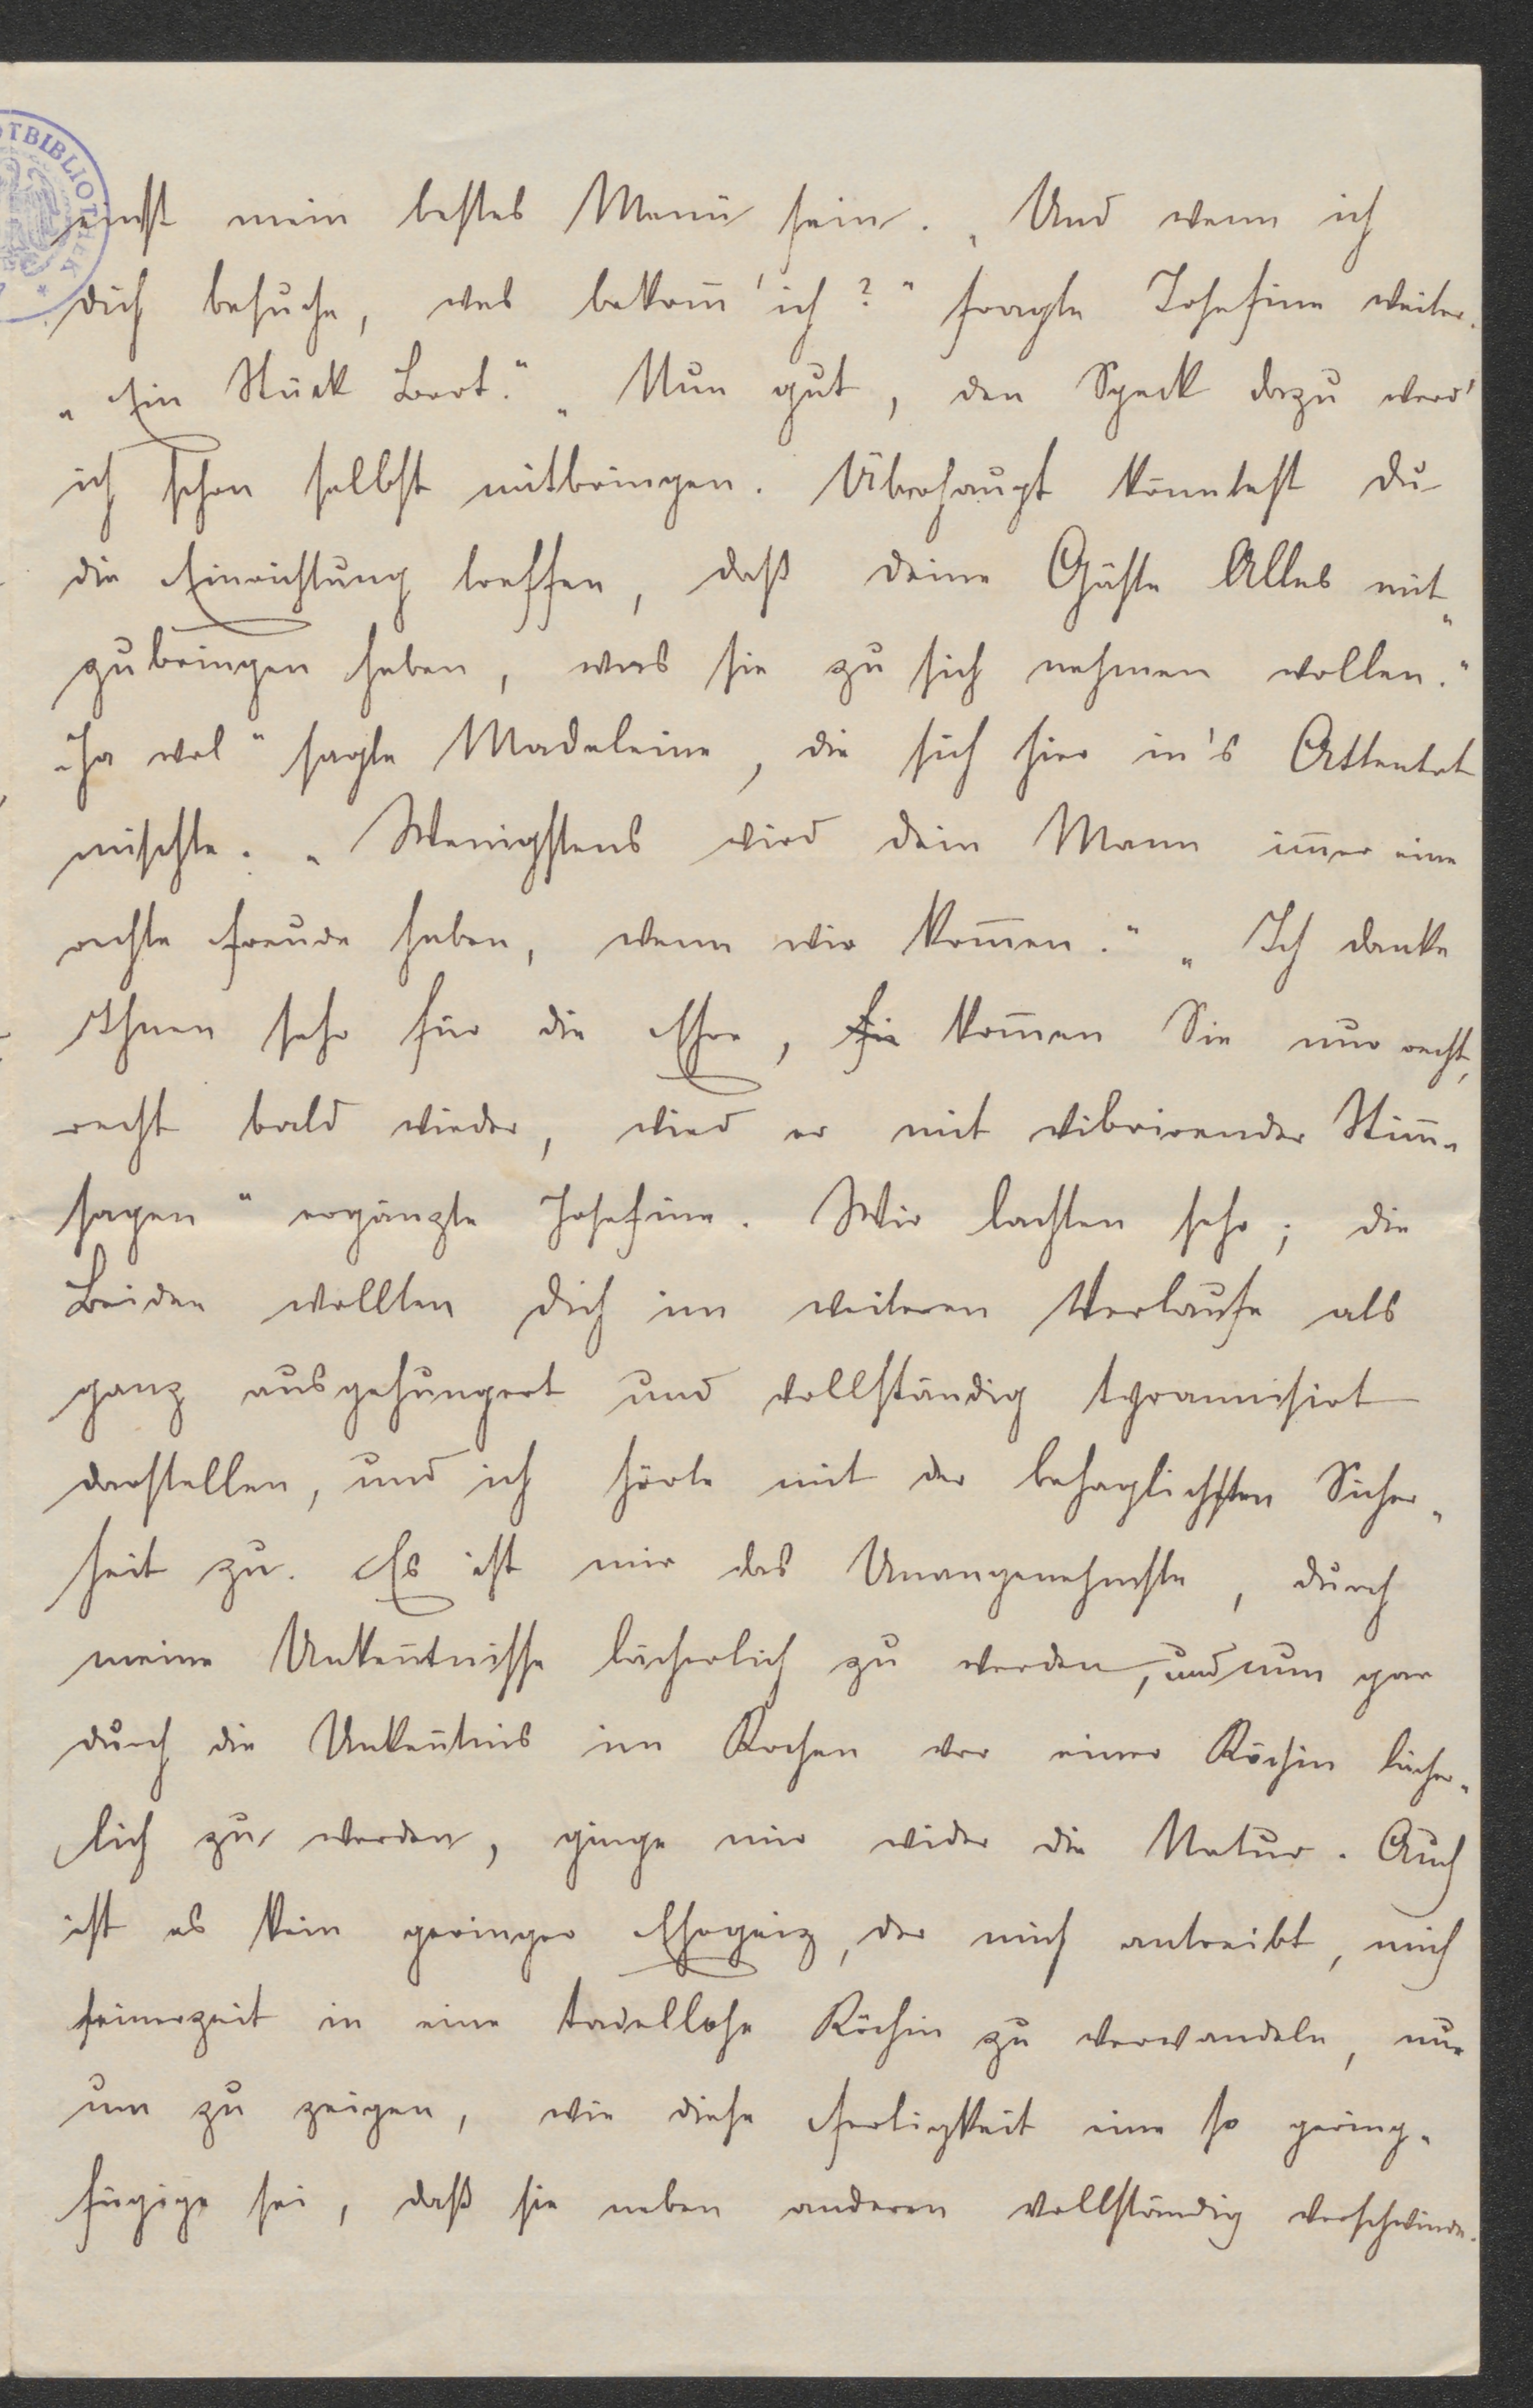 OTBIBLIOTHEK *
einst mein bestes Menü sein. „Und wenn ich
dich besuche, was bekom̅' ich?" fragte Josefine weiter.
„Ein Stück Brot." „Nun gut, den Speck dazu werd'
ich schon selbst mitbringen. Überhaupt könntest du
die Einrichtung treffen, daß deine Gäste Alles mit„
zubringen haben, was sie zu sich nehmen wollen."
„Ja wol" sagte Madeleine, die sich hier in's Attentat
mischte. „Wenigstens wird dein Mann im̅er eine
rechte Freude haben, wenn wir kom̅en." „Ich danke
Ihnen sehr für die Ehre, sie kom̅en Sie nur recht,
recht bald wieder, wird er mit vibrirender Stim̅e
sagen" ergänzte Josefine. Wir lachten sehr; die
Beiden wollten dich im weiteren Verlaufe als
ganz ausgehungert und vollständig tyrannisirt
darstellen, und ich hörte mit der behaglichsten Sicher„
heit zu. Es ist mir das Unangenehmste, durch
meine Unken̅tnisse lächerlich zu werden, und nun gar
durch die Unken̅tnis im Kochen vor einer Köchin lächer„
lich zu werden, ginge mir wider die Natur. Auch
ist es kein geringer Ehrgeiz, der mich antreibt, mich
seinerzeit in eine tadellose Köchin zu verwandeln, nur
um zu zeigen, wie diese Fertigkeit eine so gering„
fügige sei, daß sie neben anderen vollständig verschwinde.